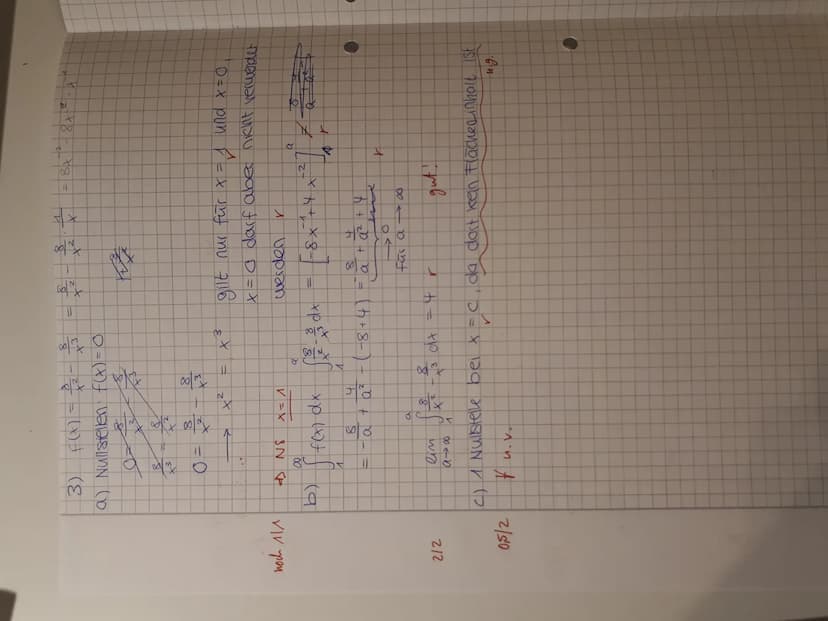 3) f(x) = 8/x² - 8/x³ = 8/x² - 8/x² · 1/x = 8x⁻² - 8x⁻² · x⁻¹
a) Nullstellen: f(x) = 0
0 = 8/x² - 8/x³
8/x³ = 8/x²
0 = 8/x² - 8/x³
→ x² = x³ gilt nur für x = 1 und x = 0,
x = 0 darf aber nicht verwendet
werden r
noch 1/1 ⇒ NS x = 1
b) ∫₁^∞ f(x) dx ∫₁^a 8/x² - 8/x³ dx = [-8x⁻¹ + 4x⁻²]₁^a r
= -8/a + 4/a² - (-8+4) = -8/a + 4/a² + 4 r
→ 0
für a → ∞
2/2 lim a→∞ ∫₁^a 8/x² - 8/x³ dx = 4 r gut!
c) 1 Nullstelle bei x = c, da dort kein Flächeninhalt ist
0,5/2 f u.v. ug.